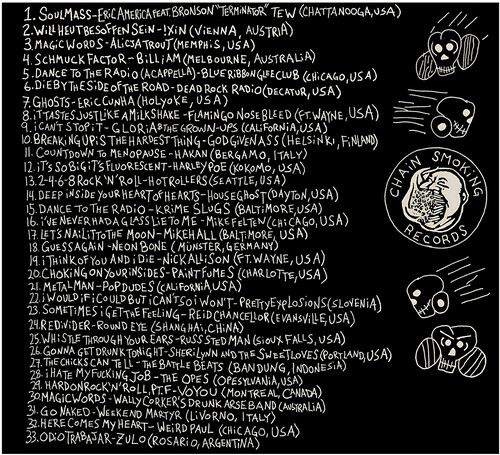 1. SOULMASS-ERIC AMERICA FEAT. BRONSON "TERMINATOR" TEW (CHATTANOOGA, USA)
2. WILL HEUT BESOFFEN SEIN-!XIN (VIENNA, AUSTRIA)
3. MAGIC WORDS-ALICJA TROUT (MEMPHIS, USA)
4. SCHMUCK FACTOR-BILLIAM (MELBOURNE, AUSTRALIA)
5. DANCE TO THE RADIO (ACAPPELLA)-BLUE RIBBON GLEE CLUB (CHICAGO, USA)
6. DIE BY THE SIDE OF THE ROAD-DEAD ROCK RADIO (DECATUR, USA)
7. GHOSTS-ERIC CUNHA (HOLYOKE, USA)
8. IT TASTES JUST LIKE A MILKSHAKE-FLAMINGO NOSEBLEED (FT. WAYNE, USA)
9. I CAN'T STOP IT-GLORIA & THE GROWN-UPS (CALIFORNIA, USA)
10. BREAKING UP IS THE HARDEST THING-GOD GIVEN ASS (HELSINKI, FINLAND)
11. COUNTDOWN TO MENOPAUSE-HAKAN (BERGAMO, ITALY)
12. IT'S SO BIG IT'S FLUORESCENT-HARLEY POE (KOKOMO, USA)
13. 2-4-6-8 ROCK 'N' ROLL-HOT ROLLERS (SEATTLE, USA)
14. DEEP INSIDE YOUR HEART OF HEARTS-HOUSEGHOST (DAYTON, USA)
15. DANCE TO THE RADIO-KRIME SLUGS (BALTIMORE, USA)
16. I'VE NEVER HAD A GLASS LIE TO ME-MIKE FELTEN (CHICAGO, USA)
17. LET'S NAIL IT TO THE MOON-MIKE HALL (BALTIMORE, USA)
18. GUESS AGAIN-NEON BONE (MÜNSTER, GERMANY)
19. I THINK OF YOU AND I DIE-NICK ALLISON (FT. WAYNE, USA)
20. CHOKING ON YOUR INSIDES-PAINT FUMES (CHARLOTTE, USA)
21. METAL MAN-POP DUDES (CALIFORNIA, USA)
22. I WOULD IF I COULD BUT I CAN'T SO I WON'T-PRETTY EXPLOSIONS (SLOVENIA)
23. SOMETIMES I GET THE FEELING-REID CHANCELLOR (EVANSVILLE, USA)
24. REDIVIDER-ROUND EYE (SHANGHAI, CHINA)
25. WHISTLE THROUGH YOUR EARS-RUSSSTED MAN (SIOUX FALLS, USA)
26. GONNA GET DRUNK TONIGHT-SHERI LYNN AND THE SWEET LOVES (PORTLAND, USA)
27. THE CHICKS CAN TELL-THE BATTLE BEATS (BANDUNG, INDONESIA)
28. I HATE MY FUCKING JOB-THE OPES (OPESYLVANIA, USA)
29. HARD ON ROCK 'N' ROLL PTF-VOYOU (MONTREAL, CANADA)
30. MAGIC WORDS-WALLY CORKER'S DRUNK ARSE BAND (AUSTRALIA)
31. GO NAKED-WEEKEND MARTYR (LIVORNO, ITALY)
32. HERE COMES MY HEART-WEIRD PAUL (CHICAGO, USA)
33. ODIO TRABAJAR-ZULO (ROSARIO, ARGENTINA)
CHAIN SMOKING
RECORDS